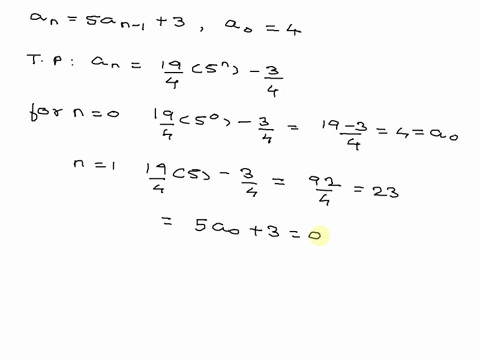 aₙ = 5aₙ₋₁ + 3 , a₀ = 4
T.P: aₙ = 19/4 (5ⁿ) - 3/4
for n = 0 19/4 (5⁰) - 3/4 = (19-3)/4 = 4 = a₀
n = 1 19/4 (5) - 3/4 = 92/4 = 23
= 5a₀ + 3 = 0